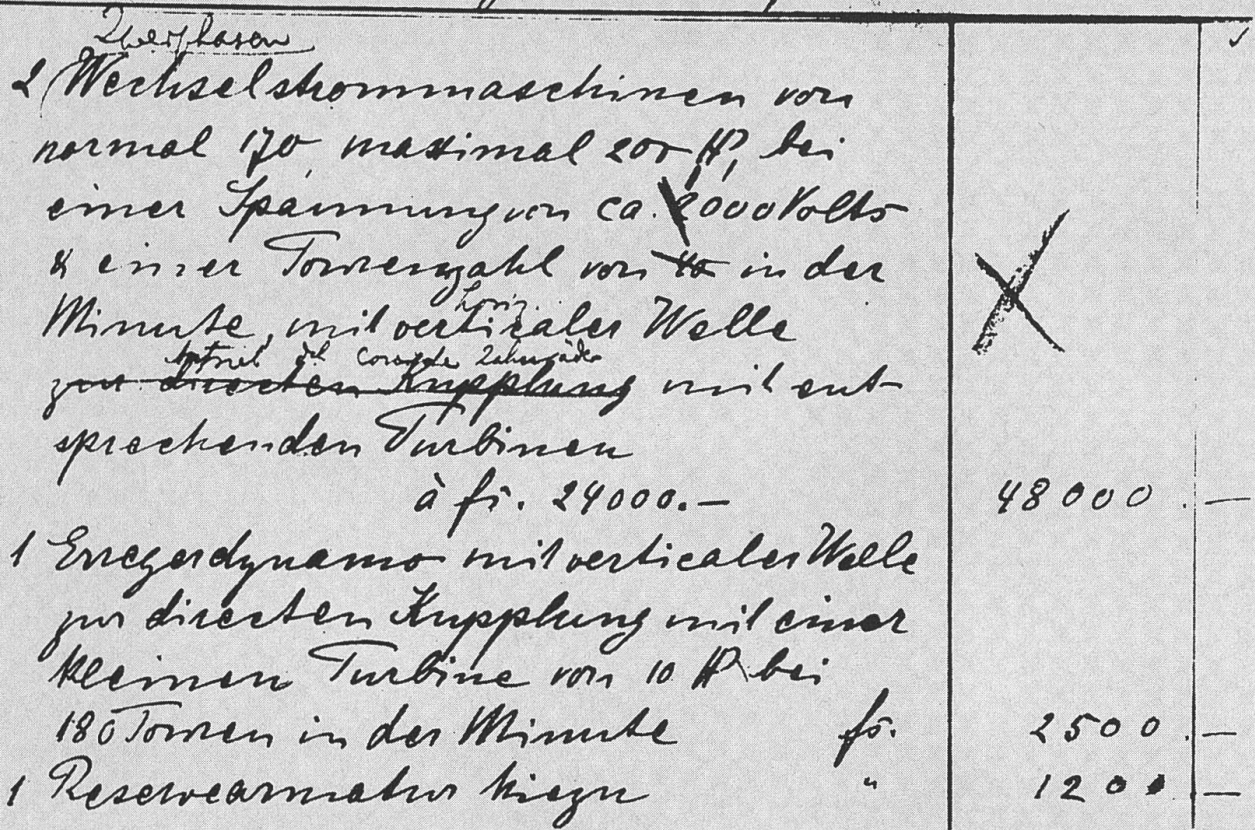 Zweiphasen
2 Wechselstrommaschinen von
normal 170 maximal 200 HP, bei
einer Spannung von ca. 2000 Volts
& einer Tourenzahl von in der
horiz.
Minute, mit verticaler Welle
Antrieb Zahnräder
zur directen Kupplung mit ent-
sprechenden Turbinen
à frs. 24000.— 48000.—
1 Erregerdynamo mit verticaler Welle
zur directen Kupplung mit einer
kleinen Turbine von 10 HP bei
180 Touren in der Minute frs. 2500.—
1 Reservearmatur hiezu " 1200.—